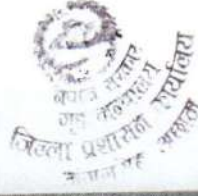 नेपाल सरकार
गृह मन्त्रालय
जिल्ला प्रशासन कार्यालय
अछाम